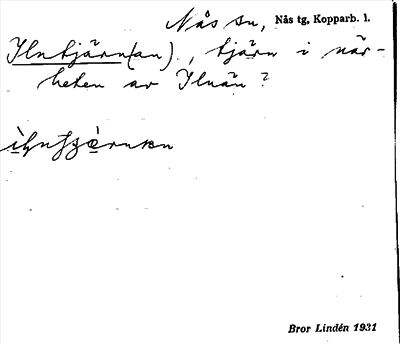 Nås sn, Nås tg, Kopparb. l.
Ilntjärn(an), tjärn i när-
heten av Ilnån?
Bror Lindén 1931